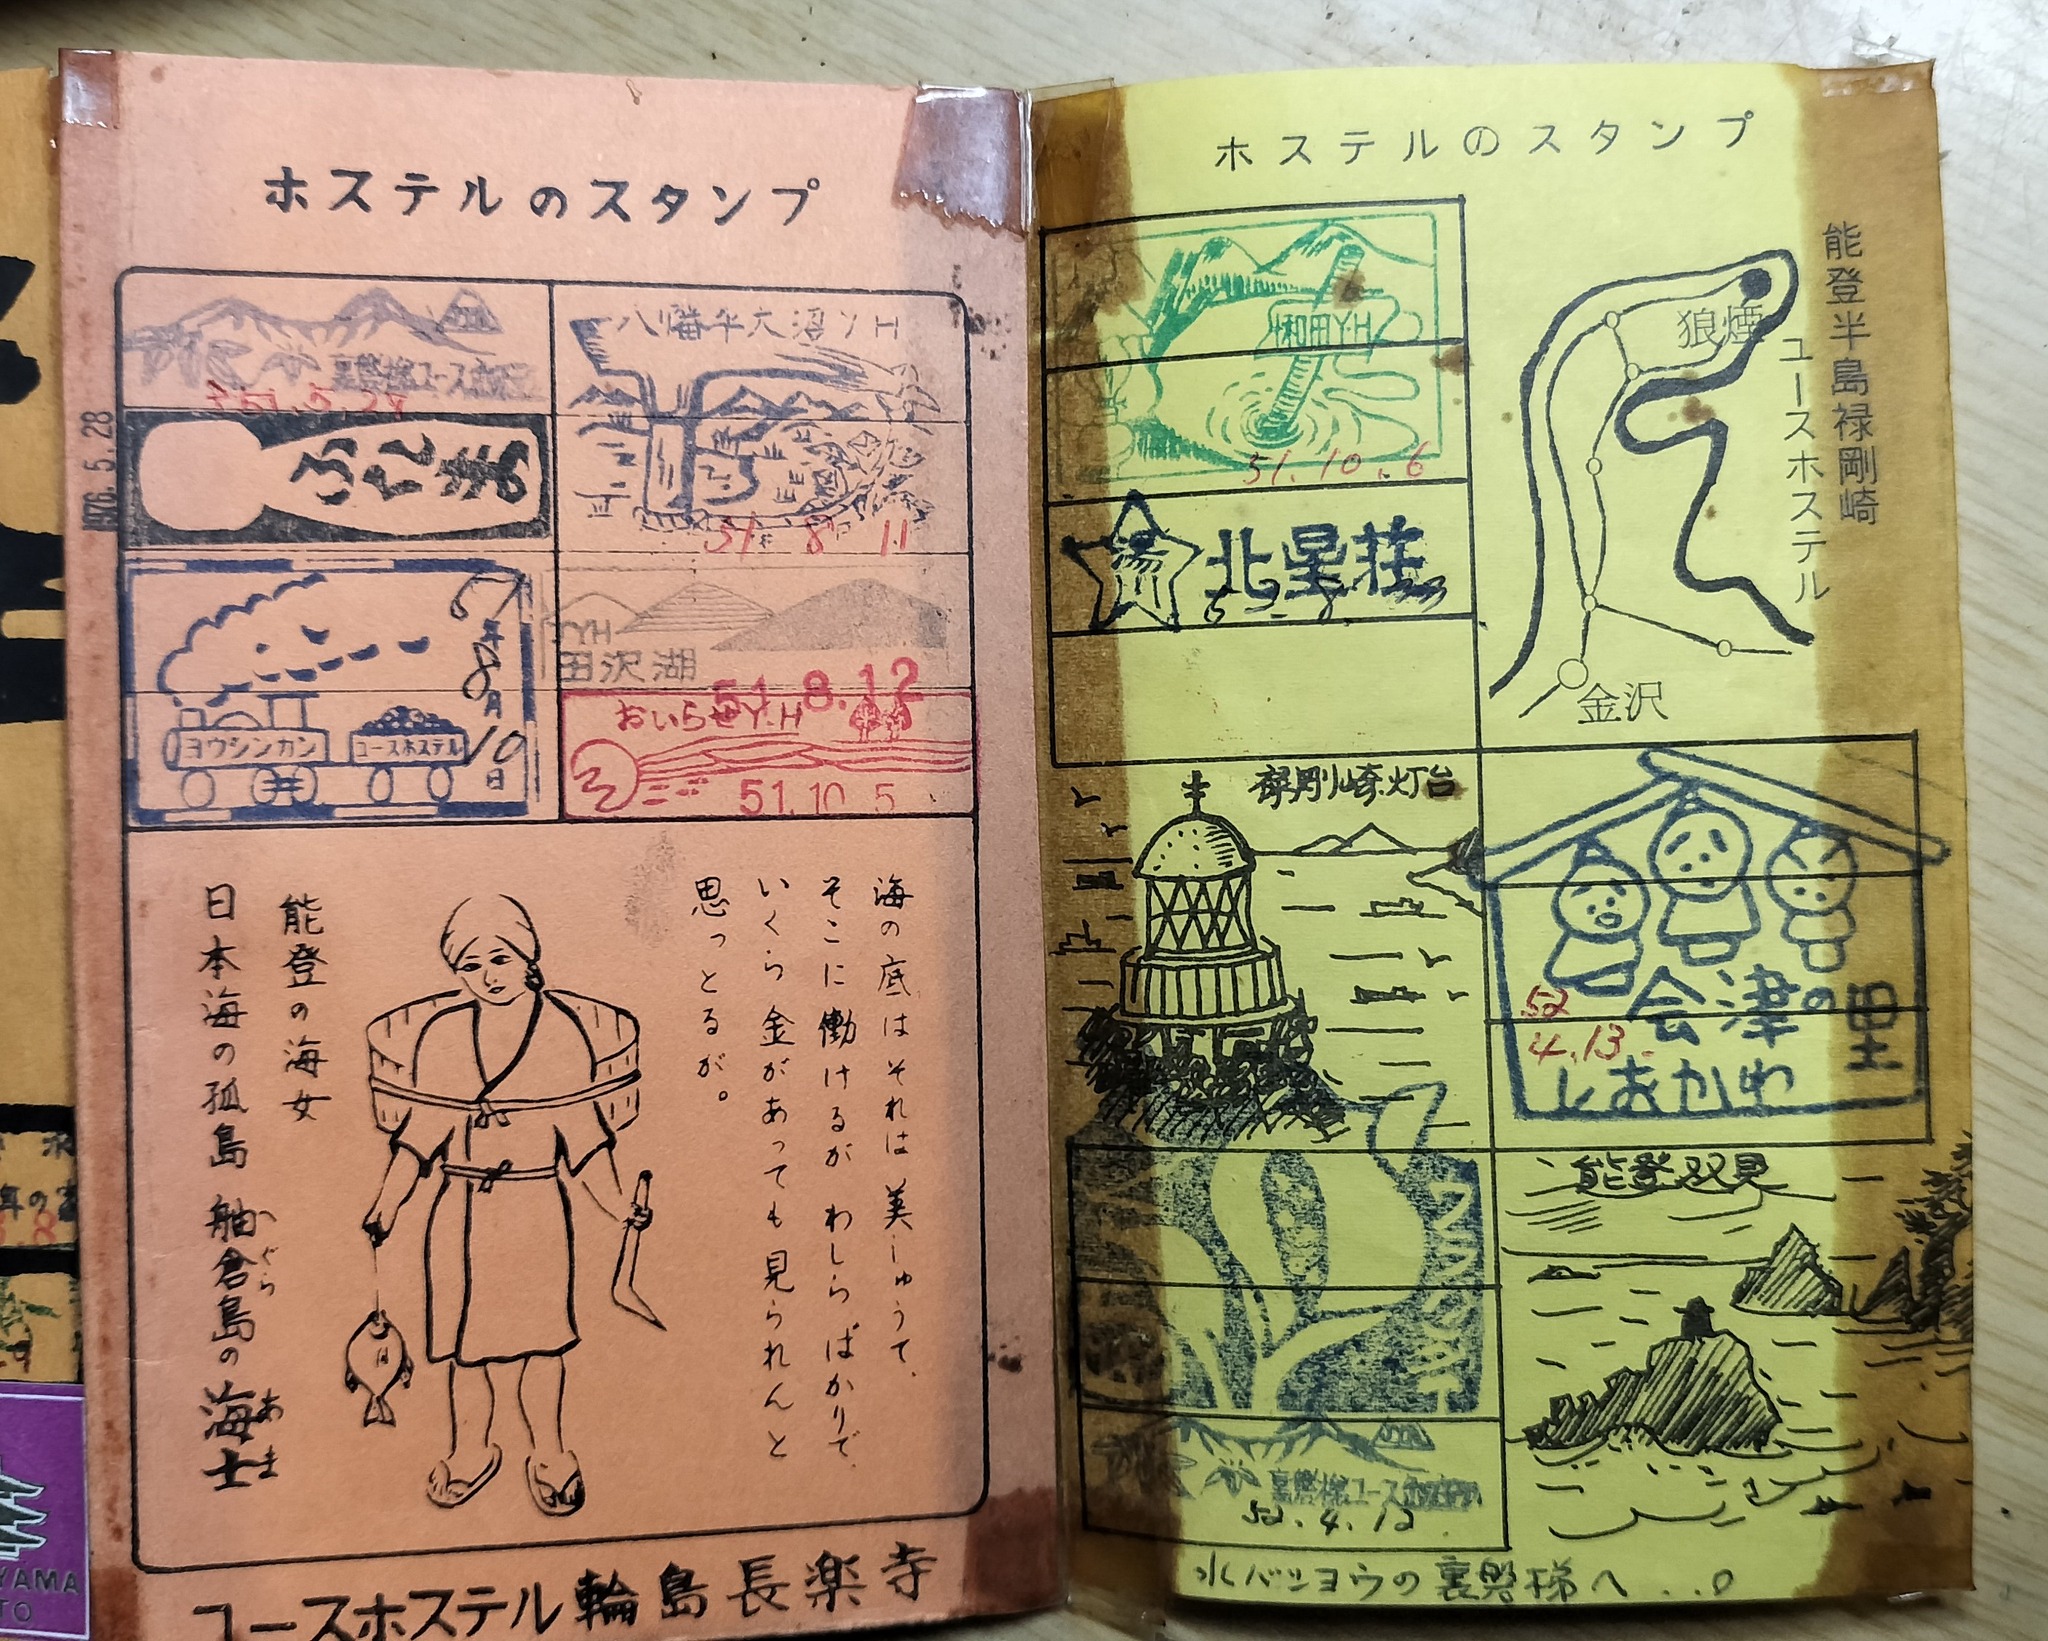 ホステルのスタンプ
裏磐梯ユースホステル
51.5.29
1976.5.28
八幡平大沼YH
51 8 11
51年8月10日
ヨウシンカン
ユースホステル
YH
田沢湖
51.8.12
おいらせY.H
51.10.5
海の底はそれは美しゅうて、
そこに働けるがわしらばかりで、
いくら金があっても見られんと
思っとるが。
能登の海女
日本海の孤島 舳倉島の海士
へぐら
あま
ユースホステル輪島長楽寺
ホステルのスタンプ
能登半島禄剛崎
ユースホステル
狼煙
金沢
和田YH
51.10.6
北星荘
禄剛崎灯台
会津の里
52
4.13
しおかわ
能登双見
裏磐梯ユースホステル
52.4.12
水バショウの裏磐梯へ...。